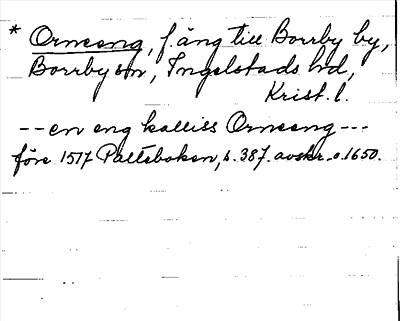 * Ormeeng, f. äng till Borrby by,
Borrby sn, Ingelstads hd,
Krist. l.
-- en eng kalliss Ormeeng ---
före 1517 Palteboken, s. 387. avskr. o. 1650.